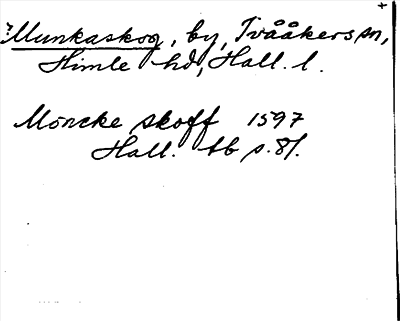 +
? Munkaskog, by, Tvååkers sn,
Himle hd, Hall. l.
Möncke skoff 1597
Hall. tb s. 81.